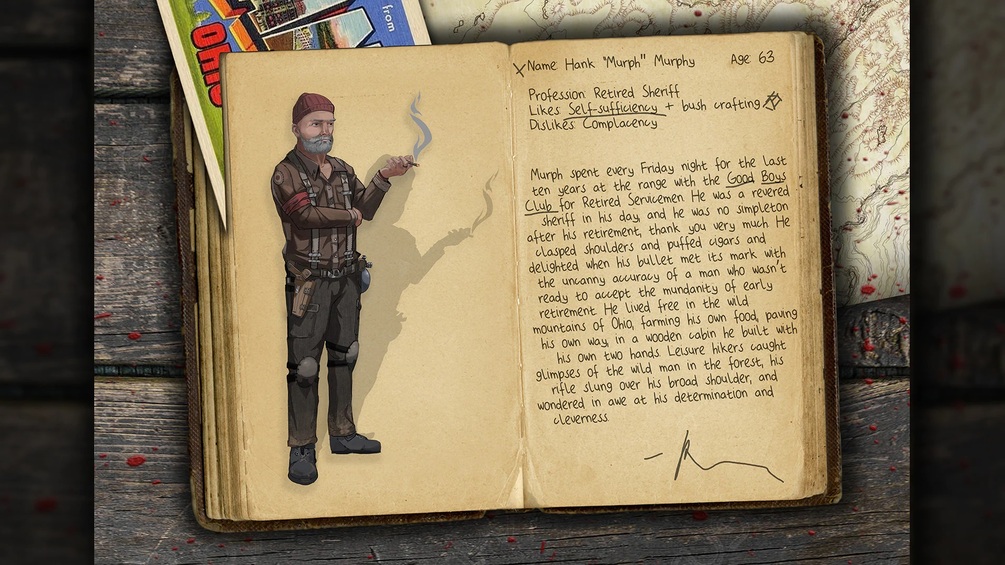 from
Ohio
Name Hank "Murph" Murphy Age 63
Profession Retired Sheriff
Likes Self-sufficiency + bush crafting
Dislikes Complacency
Murph spent every Friday night for the last
ten years at the range with the Good Boys
Club for Retired Servicemen He was a revered
sheriff in his day, and he was no simpleton
after his retirement, thank you very much He
clasped shoulders and puffed cigars and
delighted when his bullet met its mark with
the uncanny accuracy of a man who wasn't
ready to accept the mundanity of early
retirement He lived free in the wild
mountains of Ohio, farming his own food, paving
his own way, in a wooden cabin he built with
his own two hands. Leisure hikers caught
glimpses of the wild man in the forest, his
rifle slung over his broad shoulder, and
wondered in awe at his determination and
cleverness